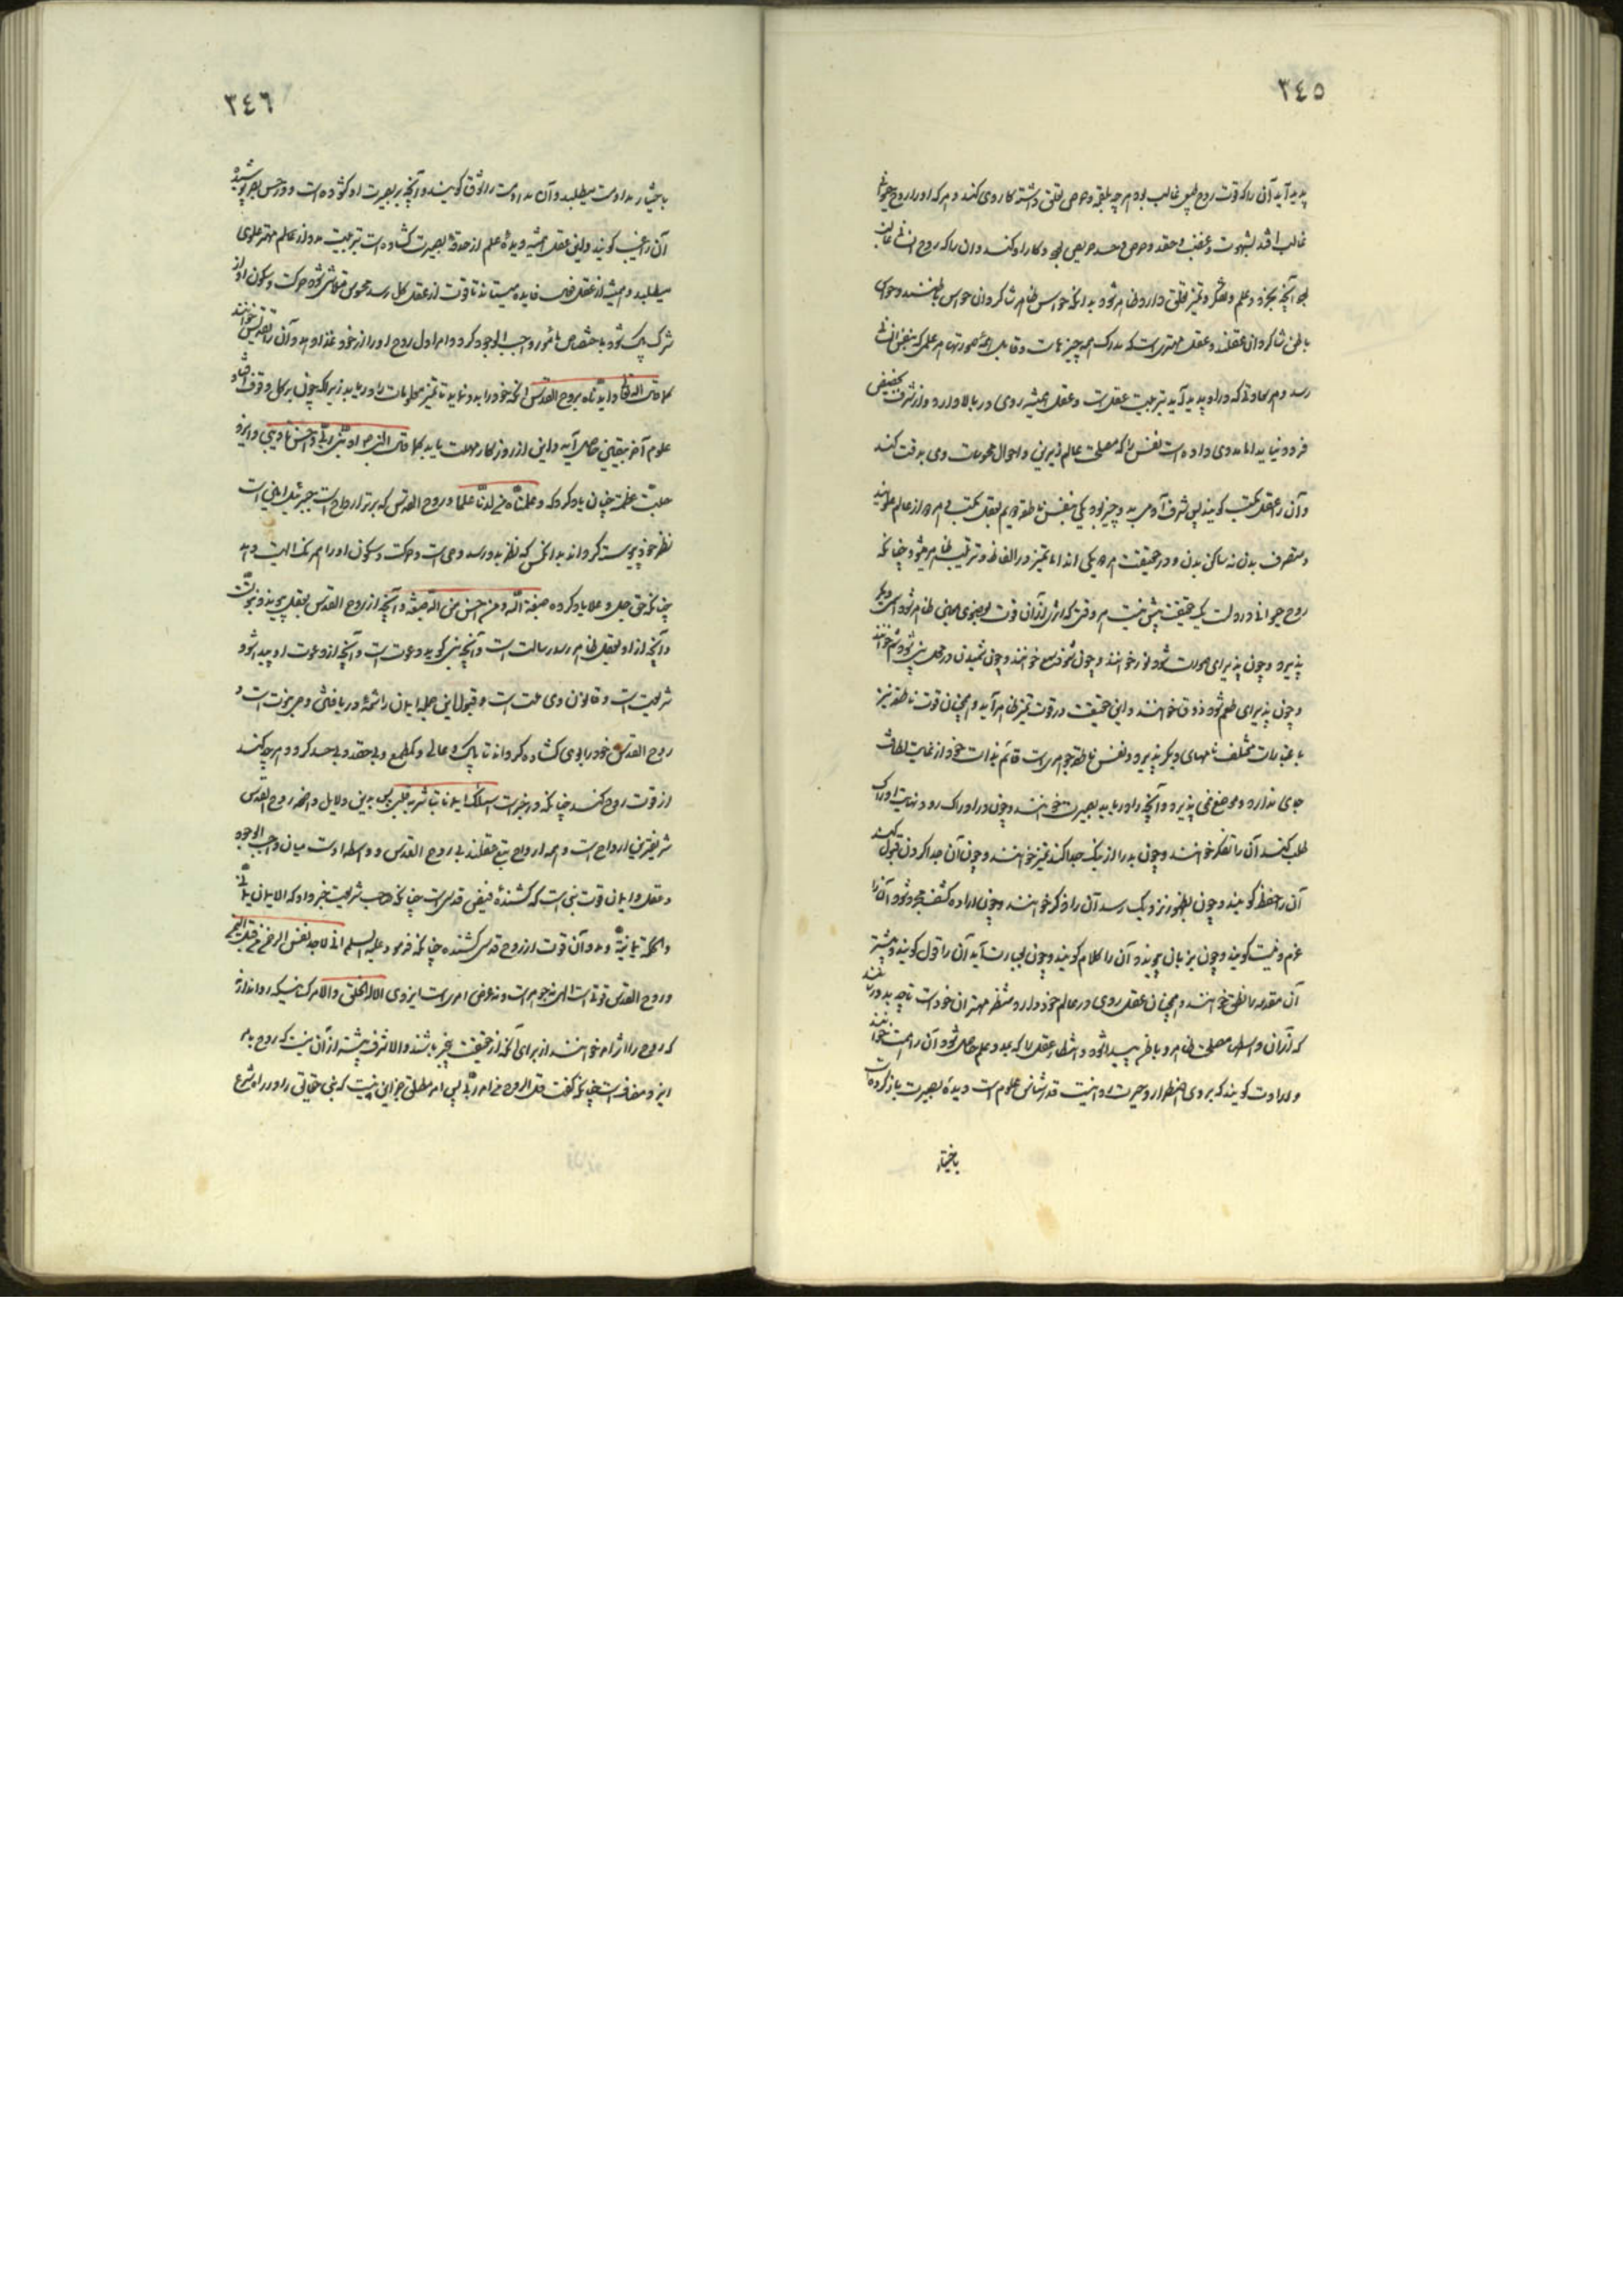 ٣٤٥
پدید آید آن را که قوت روح طبیعی غالب بود هر چه بلقمه و حرص تعلق داشته کار وی کند و هر که او را روح حیوانی
غالب افتد بشهوت و غضب و حقد و حرص و حسد حریص بود و کار او کند و ان را که روح انسانی غالب
بود آنچه بخرد و علم و تفکر و تمیز تعلق دارد ظاهر شود بدانکه حواس ظاهر شاکردان حواس باطنند و حواس
باطن شاکردان عقلند و عقل مهتریست که مدرک همه چیزهاست و قابل همه صورتها هر علمی که بنفس انسانی
رسد و هر سعادتی که در او پدید آید بتربیت عقل است و عقل همیشه روی در بالا دارد و از شرف بحضیض
فرو نیاید اما مددی داده است نفس را که مصلحت عالم زیرین و احوال محسوسات وی بدقت کند
و آن را عقل مکتسب کویند پس شرف آدمی به دو چیز بود یکی بنفس ناطقه دویم بعقل مکتسب و هر دو از عالم علویند
و متصرف بدن نه ساکن بدن و در حقیقت هر دو یکی اند اما تمیز در الفاظ و ترتیب ظاهر میشود چنانکه
روح حیوانی در ولت یک حقیقت بیش نیست هر وقتی که اثری از آن قوت بعضوی معین ظاهر شود اسمی دیگر
پذیرد و چون پذیرای صورت شود نور خوانند و چون شنود سمع خوانند و چون شمیدن در محل بینی بود شم خوانند
و چون پذیرای طعم شود ذوق خوانند و این حقیقت در قوت تمیز ظاهر آید و همچنان قوت ناطقه نیز
باعتبارات مختلف نامهای دیکر پذیرد و نفس ناطقه جوهریست قائم بذات خود از غایت لطافت
جای ندارد و موضع نمی پذیرد و آنچه را دریابد بصیرت خوانند و چون در ادراک رود و نهایت ادراک
طلب کند آن را تفکر خوانند و چون بد را از نیک جدا کند تمیز خوانند و چون آن جدا کردن قبول کند
آن را حفظ کویند و چون بظهور نزدیک رسد آن را ذکر خوانند و چون اراده کشف مجرد شود آن را
عزم و نیت کویند و چون بزبان پیوندد آن را کلام کویند و چون بعبارت آید آن را قول کویند و بیشتر
آن مقدمه را نطق خوانند و همچنان عقل روی در عالم خود دارد و منتظر مهتران خود است تا چه بدو رسانند
که از آن واسطه مصلحت ظاهر و باطن پیدا شود و انتظار عقل را که مدد و علم حاصل شود آن را همت خوانند
و ارادت کویند که بروی اضطرار و حیرت روا نیست قدرشناس علوم است دیده بصیرت باز کرده است
باختیار
٣٤٦
باختیار مداومت میطلبد و آن مداومت را شوق کویند و آنچه بر بصیرت او کشوده است و در حس بصر پوشیده
آن را غیب کویند و این عقل همیشه دیده علم از حدقه بصیرت کشاده است تربیت مدد از عالم مهتر علوی
میطلبد و همیشه از عقل فعال فایده میستاند تا قوت از عقل کل رسد تا محسوس متلاشی شود حرکت و سکون او از
شرک پاک شود باختصاص مأمور واجب الوجود کردد و امر اول روح او را از خود غذا دهد و آن را تقدیس خوانند
کما قال الله تعالی و ایدناه بروح القدس آنکه خود را بدو نماید تا تمیز معلومات را دریابد زیرا که چون بر کل وقوف افتاد
علوم آخر بیقین حاصل آید و این از روز کار مهلت یابد کما قال النبی ص ادبنی ربی فاحسن تأدیبی و ایزد
جلت عظمته چنان یاد کرد که و علمناه من لدنا علما و روح القدس که برتر ارواح است جبرئیل امین است
نظر خود پیوسته کرداند بدان کس که نظر بدو رسد وحی است و حرکت و سکون او را همرنک الهیت دهد
چنانکه حق جل و علا یاد کرده صبغة الله و من احسن من الله صبغة و آنچه از روح القدس بعقل پیوندد نبوتست
و آنچه از او بعقل ظاهر رسد رسالت است و آنچه نبی کوید دعوت است و آنچه از دعوت او پیدا شود
شریعت است و قانون وی ملت است و قبول این جمله ایمان را شمه دریافتن و مر نبوت است و
روح القدس خود را بوی کشاده کرداند تا پاک و عالی و کم طمع و بی حقد و بی حسد کردد هر چه کند
از قوت روح کند چنانکه در خبر است اسئلک ایمانا تباشر به قلبی پس بدین دلایل واضحه روح القدس
شریفترین ارواح است و همه ارواح تبع عقلند بی روح القدس و واسطه اوست میان واجب الوجود
و عقل و ایمان قوت نبی است که کشنده فیض قدس است چنانکه صاحب شریعت خبر داد که الایمان یمانی
و الحکمة یمانیة و مدد آن قوت از روح قدس کشنده چنانکه فرمود علیه السلام انی لاجد نفس الرحمن من قبل الیمن
و روح القدس قوتی است الهی نه جوهر است و نه عرضی امریست ایزدی الا له الخلق و الامر کسانیکه روا ندارند
که روح را امر خوانند از برای آنکه از حقیقت بی خبر باشند و الا شرف بیشتر از آن نیست که روح بامر
ایزد مضاف است چنانکه گفت قل الروح من امر ربی پس امر مطلق جز این نیست که نبی حقایق را در راه شرع